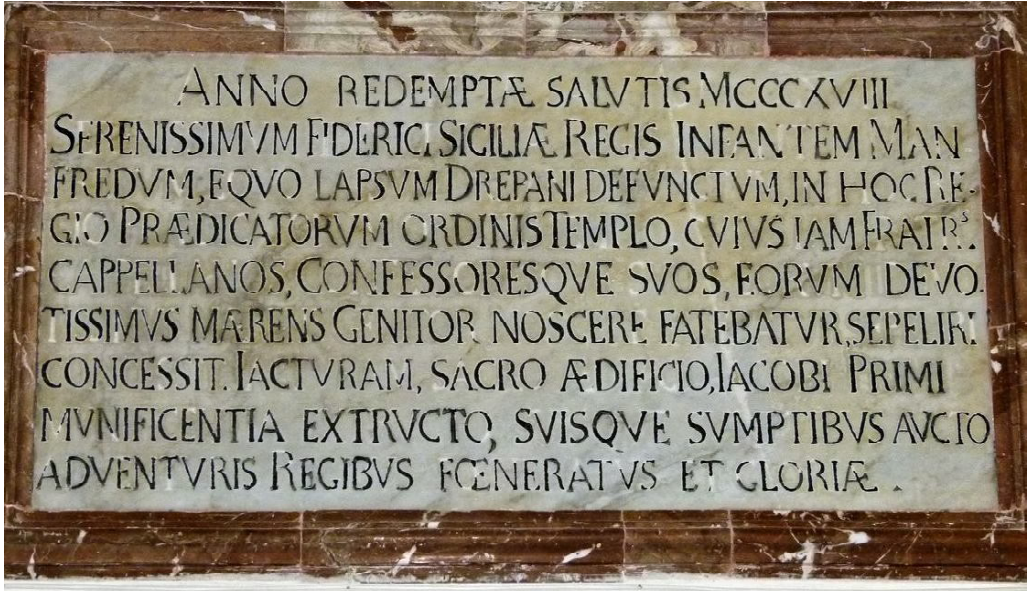 ANNO REDEMPTÆ SALVTIS MCCCXVIII
SERENISSIMVM FIDERICI SICILIÆ REGIS INFANTEM MAN
FREDVM, EQVO LAPSVM DREPANI DEFVNCTVM, IN HOC RE-
GIO PRÆDICATORVM ORDINIS TEMPLO, CVIVS IAM FRATRS.
CAPPELLANOS, CONFESSORESQVE SVOS, EORVM DEVO
TISSIMVS MÆRENS GENITOR NOSCERE FATEBATVR, SEPELIRI
CONCESSIT. IACTVRAM, SACRO ÆDIFICIO, IACOBI PRIMI
MVNIFICENTIA EXTRVCTO, SVISQVE SVMPTIBVS AVCTO
ADVENTVRIS REGIBVS FŒNERATVS ET GLORIÆ.